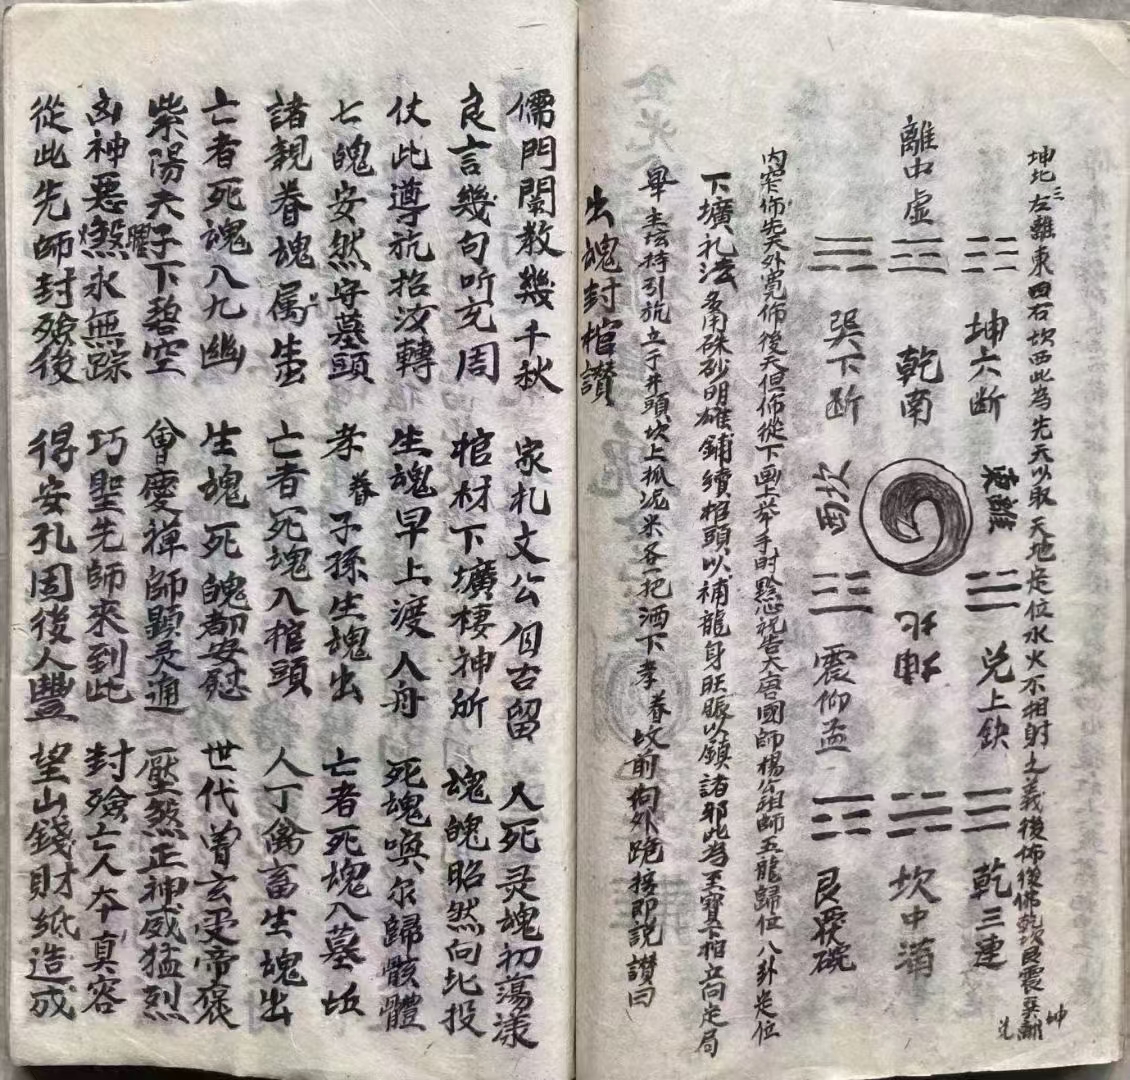 坤地三左離東四右坎西此為先天以取天地定位水火不相射之義後佈後佛乾坎艮震巽離坤兌
離中虛
坤六断
乾南
巽下断
東離
西坎
北坤
兌上缺
震仰盂
乾三連
坎中滿
艮覆碗
内窄佈先天外寬佈後天但佈從下画上举手時黙祝告大唐國師楊公祖師五龍歸位八卦定位
下壙礼法
多用硃砂明雄鋪續棺頭以補龍身旺脈以鎮諸邪此為至寶下棺立向定局
畢主坛持引旐立于井頭坟上抓泥米各一把洒下孝眷坟前向外跪接即說讃曰
出魂封棺讃
儒門闡教幾千秋 家礼文公自古留 人死灵魂初蕩漾
良言幾句听充周 棺材下壙棲神所 魂魄昭然向此投
仗此導旐招汝轉 生魂早上渡人舟 死魂喚尔歸骸體
七魄安然守墓頭 孝眷子孫生魂出 亡者死魂入墓坵
諸親眷魂属生出 亡者死魂入棺頭 人丁禽畜生魂出
亡者死魂入九幽 生魂死魄都安慰 世代曾玄受帝褒
紫陽夫子下碧空 曾慶禅師顕灵通 壓煞正神威猛烈
凶神惡煞永無踪 巧聖先師來到此 封殮亡人本真容
從此先師封殮後 得安孔固後人豐 望山錢財紙造成